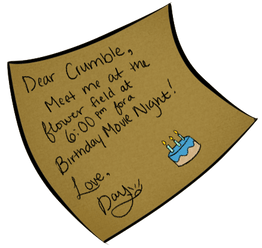 Dear Crumble,
Meet me at the
flower field at
6:00 pm for a
Birthday Movie Night!
Love,
Day